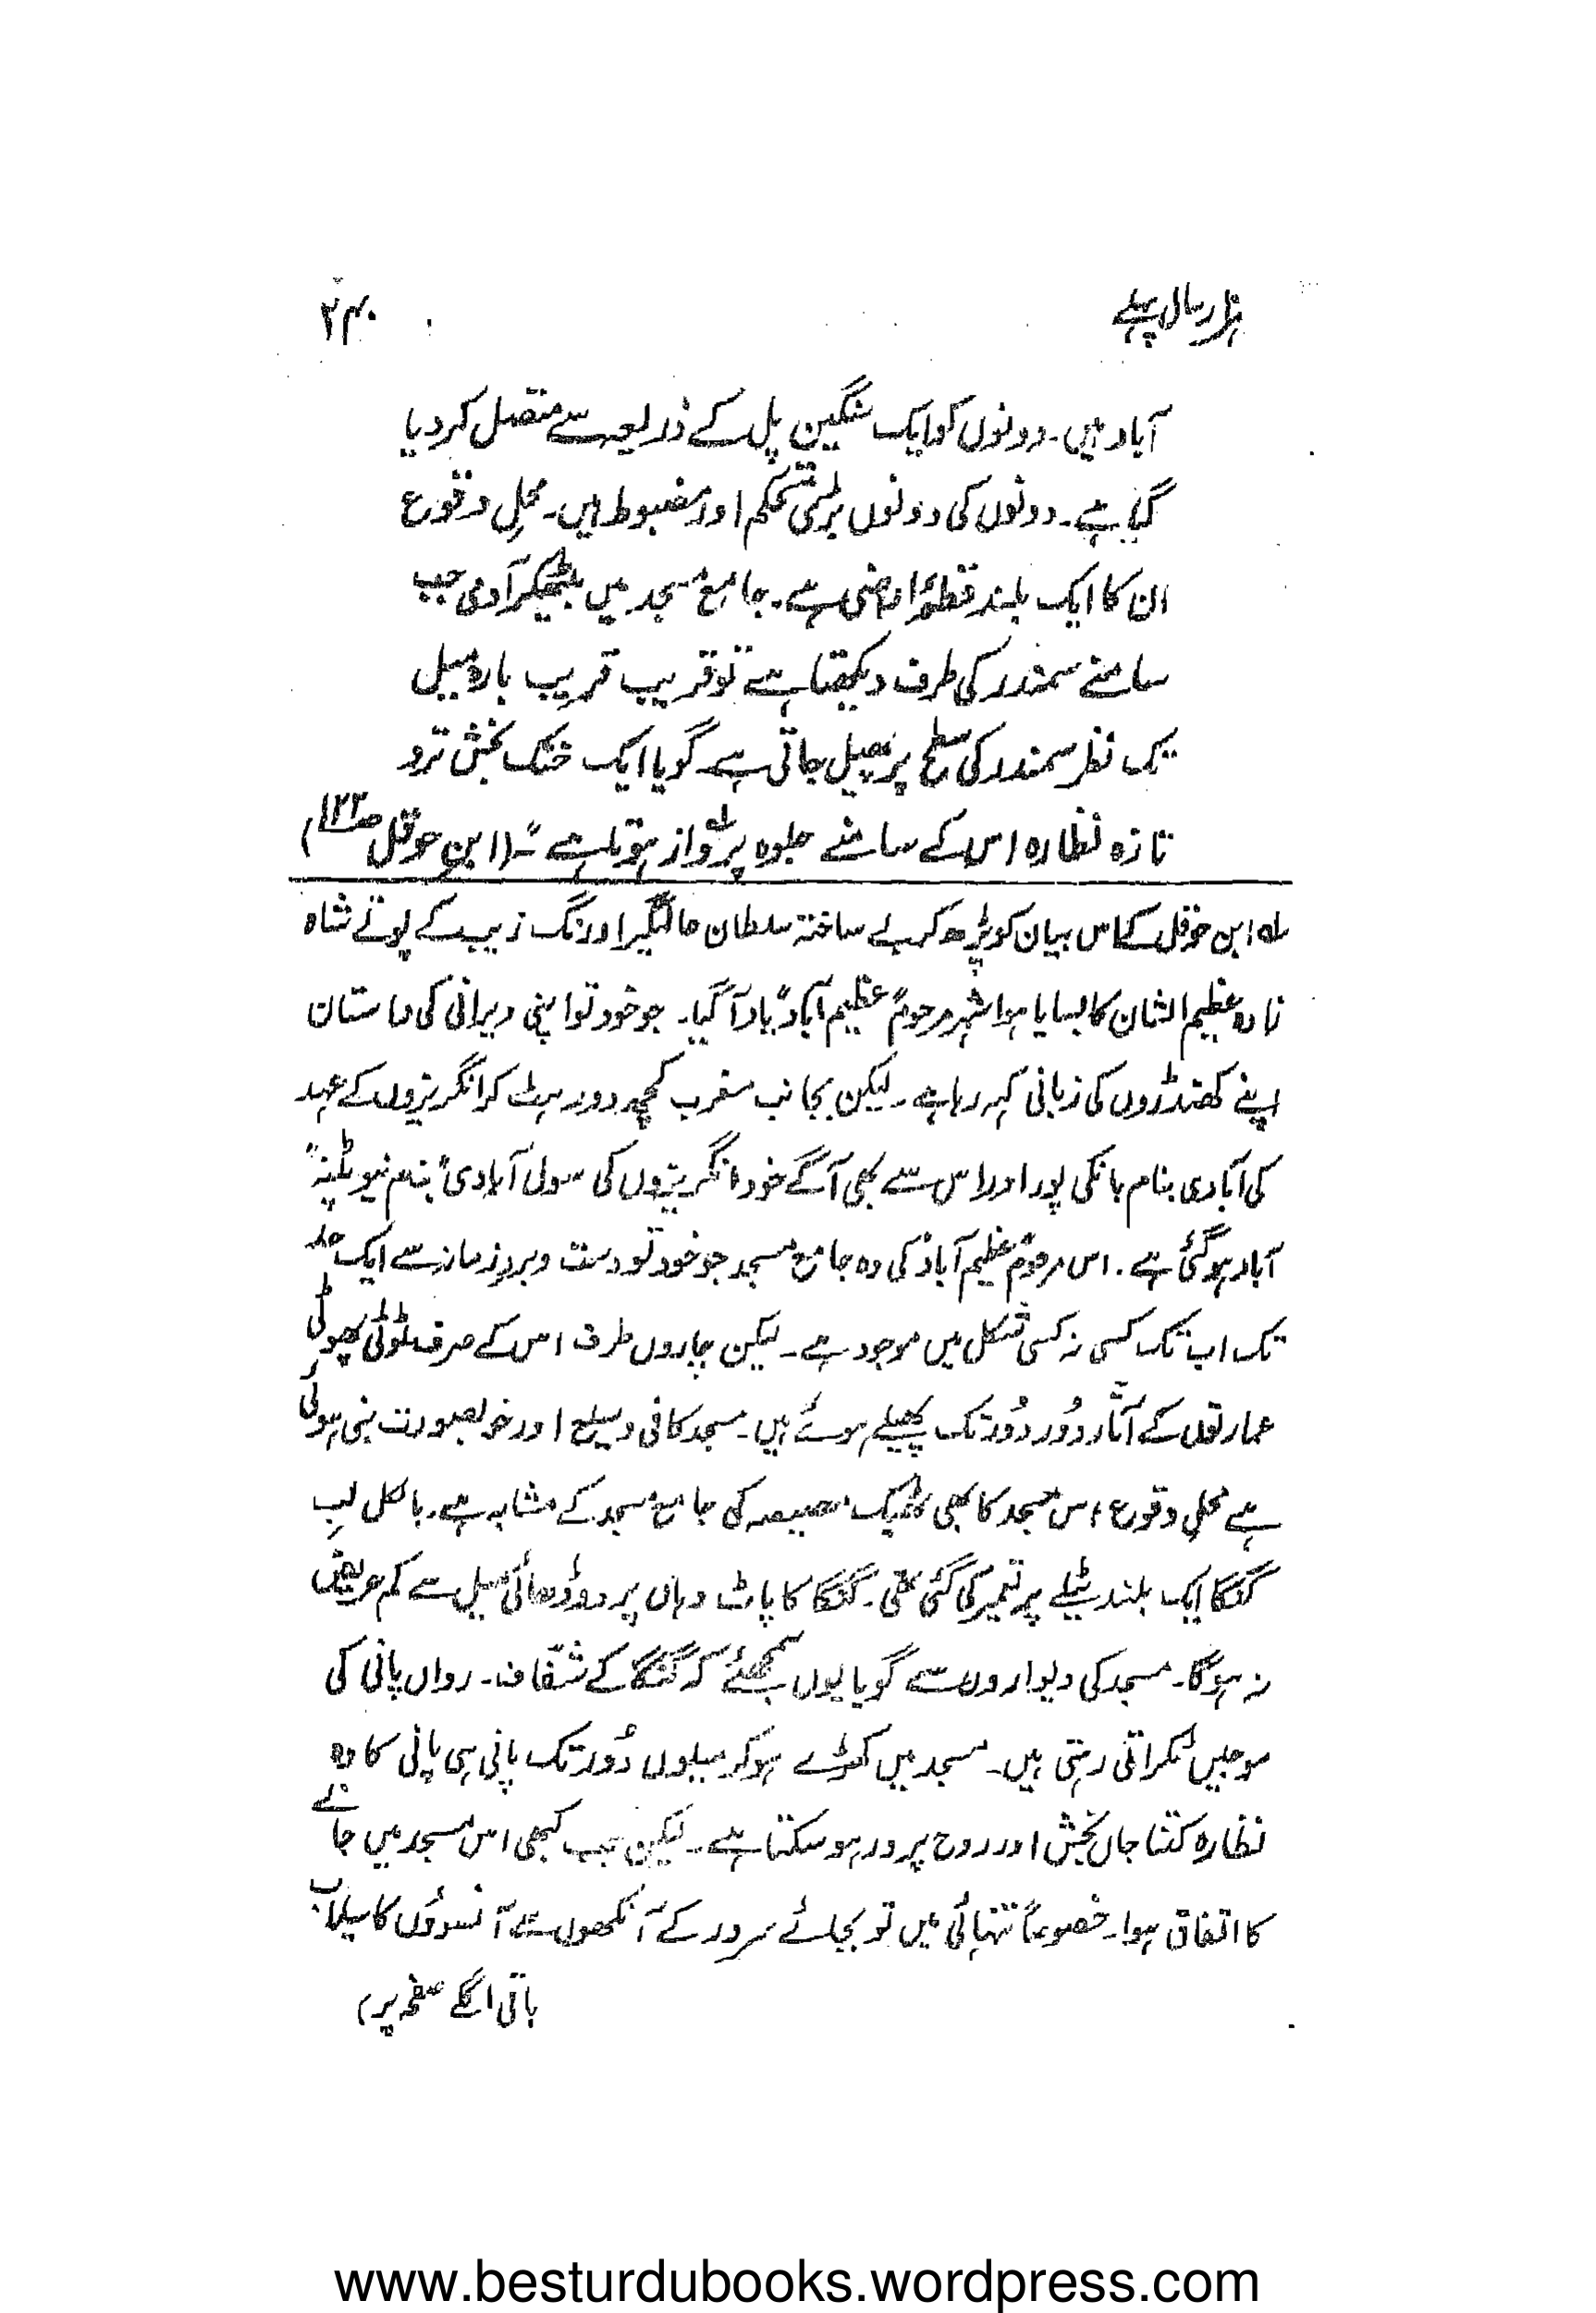 ہزار سال پہلے
۲۴۰
آباد ہیں۔ دونوں کو ایک سنگین پل کے ذریعہ سے متصل کردیا
گیا ہے۔ دونوں کی دونوں بڑی مستحکم اور مضبوط ہیں۔ محلِ وقوع
ان کا ایک بلند قطعۂ اراضی ہے۔ جامع مسجد میں بیٹھکر آدمی جب
سامنے سمندر کی طرف دیکھتا ہے تو قریب قریب بارہ میل
تک نظر سمندر کی سطح پر پھیل جاتی ہے۔ گویا ایک خنک بخش ترو
تازہ نظارہ اس کے سامنے جلوہ پرواز ہوتا ہے"۔ (ابن حوقل ص۱۲۳)
لہ ابن حوقل کے اس بیان کو پڑھ کر بے ساختہ سلطان عالمگیر اورنگ زیب کے پوتے شاہ
زادہ عظیم الشان کا بسایا ہوا شہر مرحوم "عظیم آباد" یاد آگیا۔ جو خود تو اپنی ویرانی کی داستان
اپنے کھنڈروں کی زبانی کہہ رہا ہے۔ لیکن بجانب مغرب کچھ دور ہٹ کر انگریزوں کے عہد
کی آبادی بنام بانکی پور اور اس سے بھی آگے خود انگریزوں کی سول آبادی "بنام نیو پٹنہ"
آباد ہوگئی ہے۔ اس مرحوم عظیم آباد کی وہ جامع مسجد جو خود تو دست و بردِ زمانہ سے ایک حد
تک اب تک کسی نہ کسی شکل میں موجود ہے۔ لیکن چاروں طرف اس کے صرف ٹوٹی پھوٹی
عمارتوں کے آثار دُور دُور تک پھیلے ہوئے ہیں۔ مسجد کافی وسیع اور خوبصورت بنی ہوئی
ہے محلِ وقوع اس مسجد کا بھی ٹھیک مصیصہ کی جامع مسجد کے مشابہ ہے۔ بالکل لبِ
گنگا ایک بلند ٹیلے پر تعمیر کی گئی تھی۔ گنگا کا پاٹ وہاں پر دو ڈھائی میل سے کم عریض
نہ ہوگا۔ مسجد کی دیواروں سے گویا یوں سمجھئے کہ گنگا کے شفّاف۔ رواں پانی کی
موجیں ٹکراتی رہتی ہیں۔ مسجد میں کھڑے ہوکر میلوں دُور تک پانی ہی پانی کا وہ
نظارہ کتنا جاں بخش اور روح پرور ہوسکتا ہے۔ لیکن جب کبھی اس مسجد میں جانے
کا اتفاق ہوا۔ خصوصاً تنہائی میں تو بجائے سرور کے آنکھوں سے آنسوؤں کا سیلاب
باقی اگلے صفحہ پر)
www.besturdubooks.wordpress.com